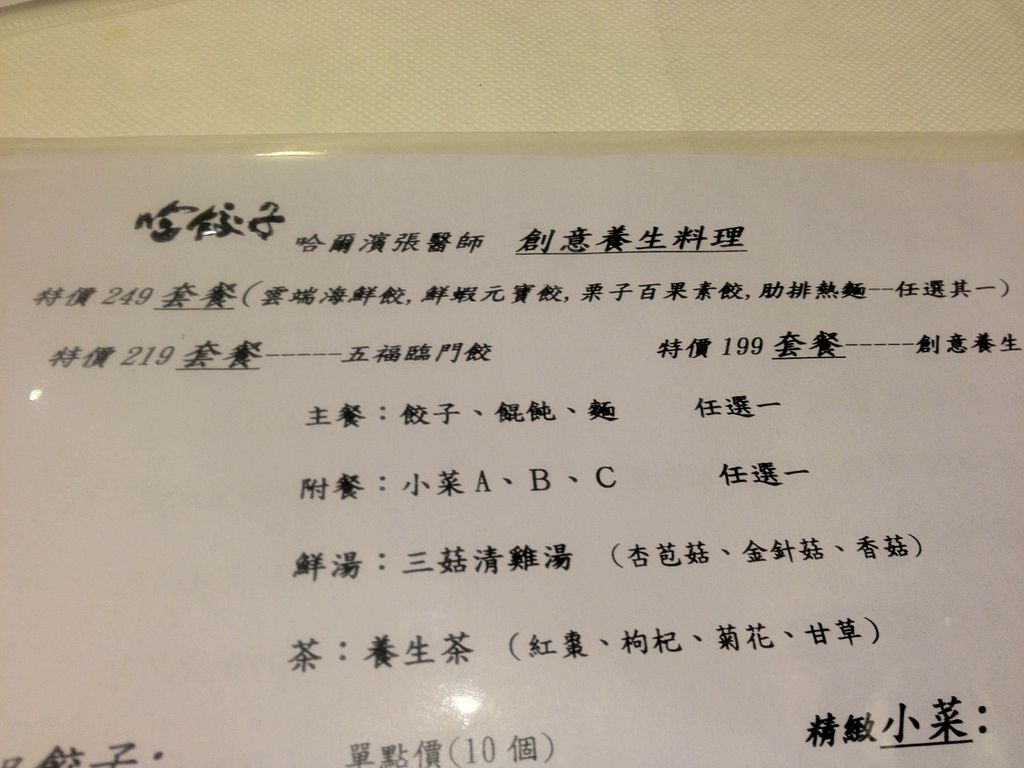 哈餃子 哈爾濱張醫師 創意養生料理
特價 249 套餐(雲端海鮮餃,鮮蝦元寶餃,栗子百果素餃,肋排熱麵--任選其一)
特價 219 套餐-----五福臨門餃 特價 199 套餐-----創意養生
主餐：餃子、餛飩、麵 任選一
附餐：小菜A、B、C 任選一
鮮湯：三菇清雞湯 （杏苞菇、金針菇、香菇）
茶：養生茶 （紅棗、枸杞、菊花、甘草）
精緻小菜：
餃子： 單點價(10個)